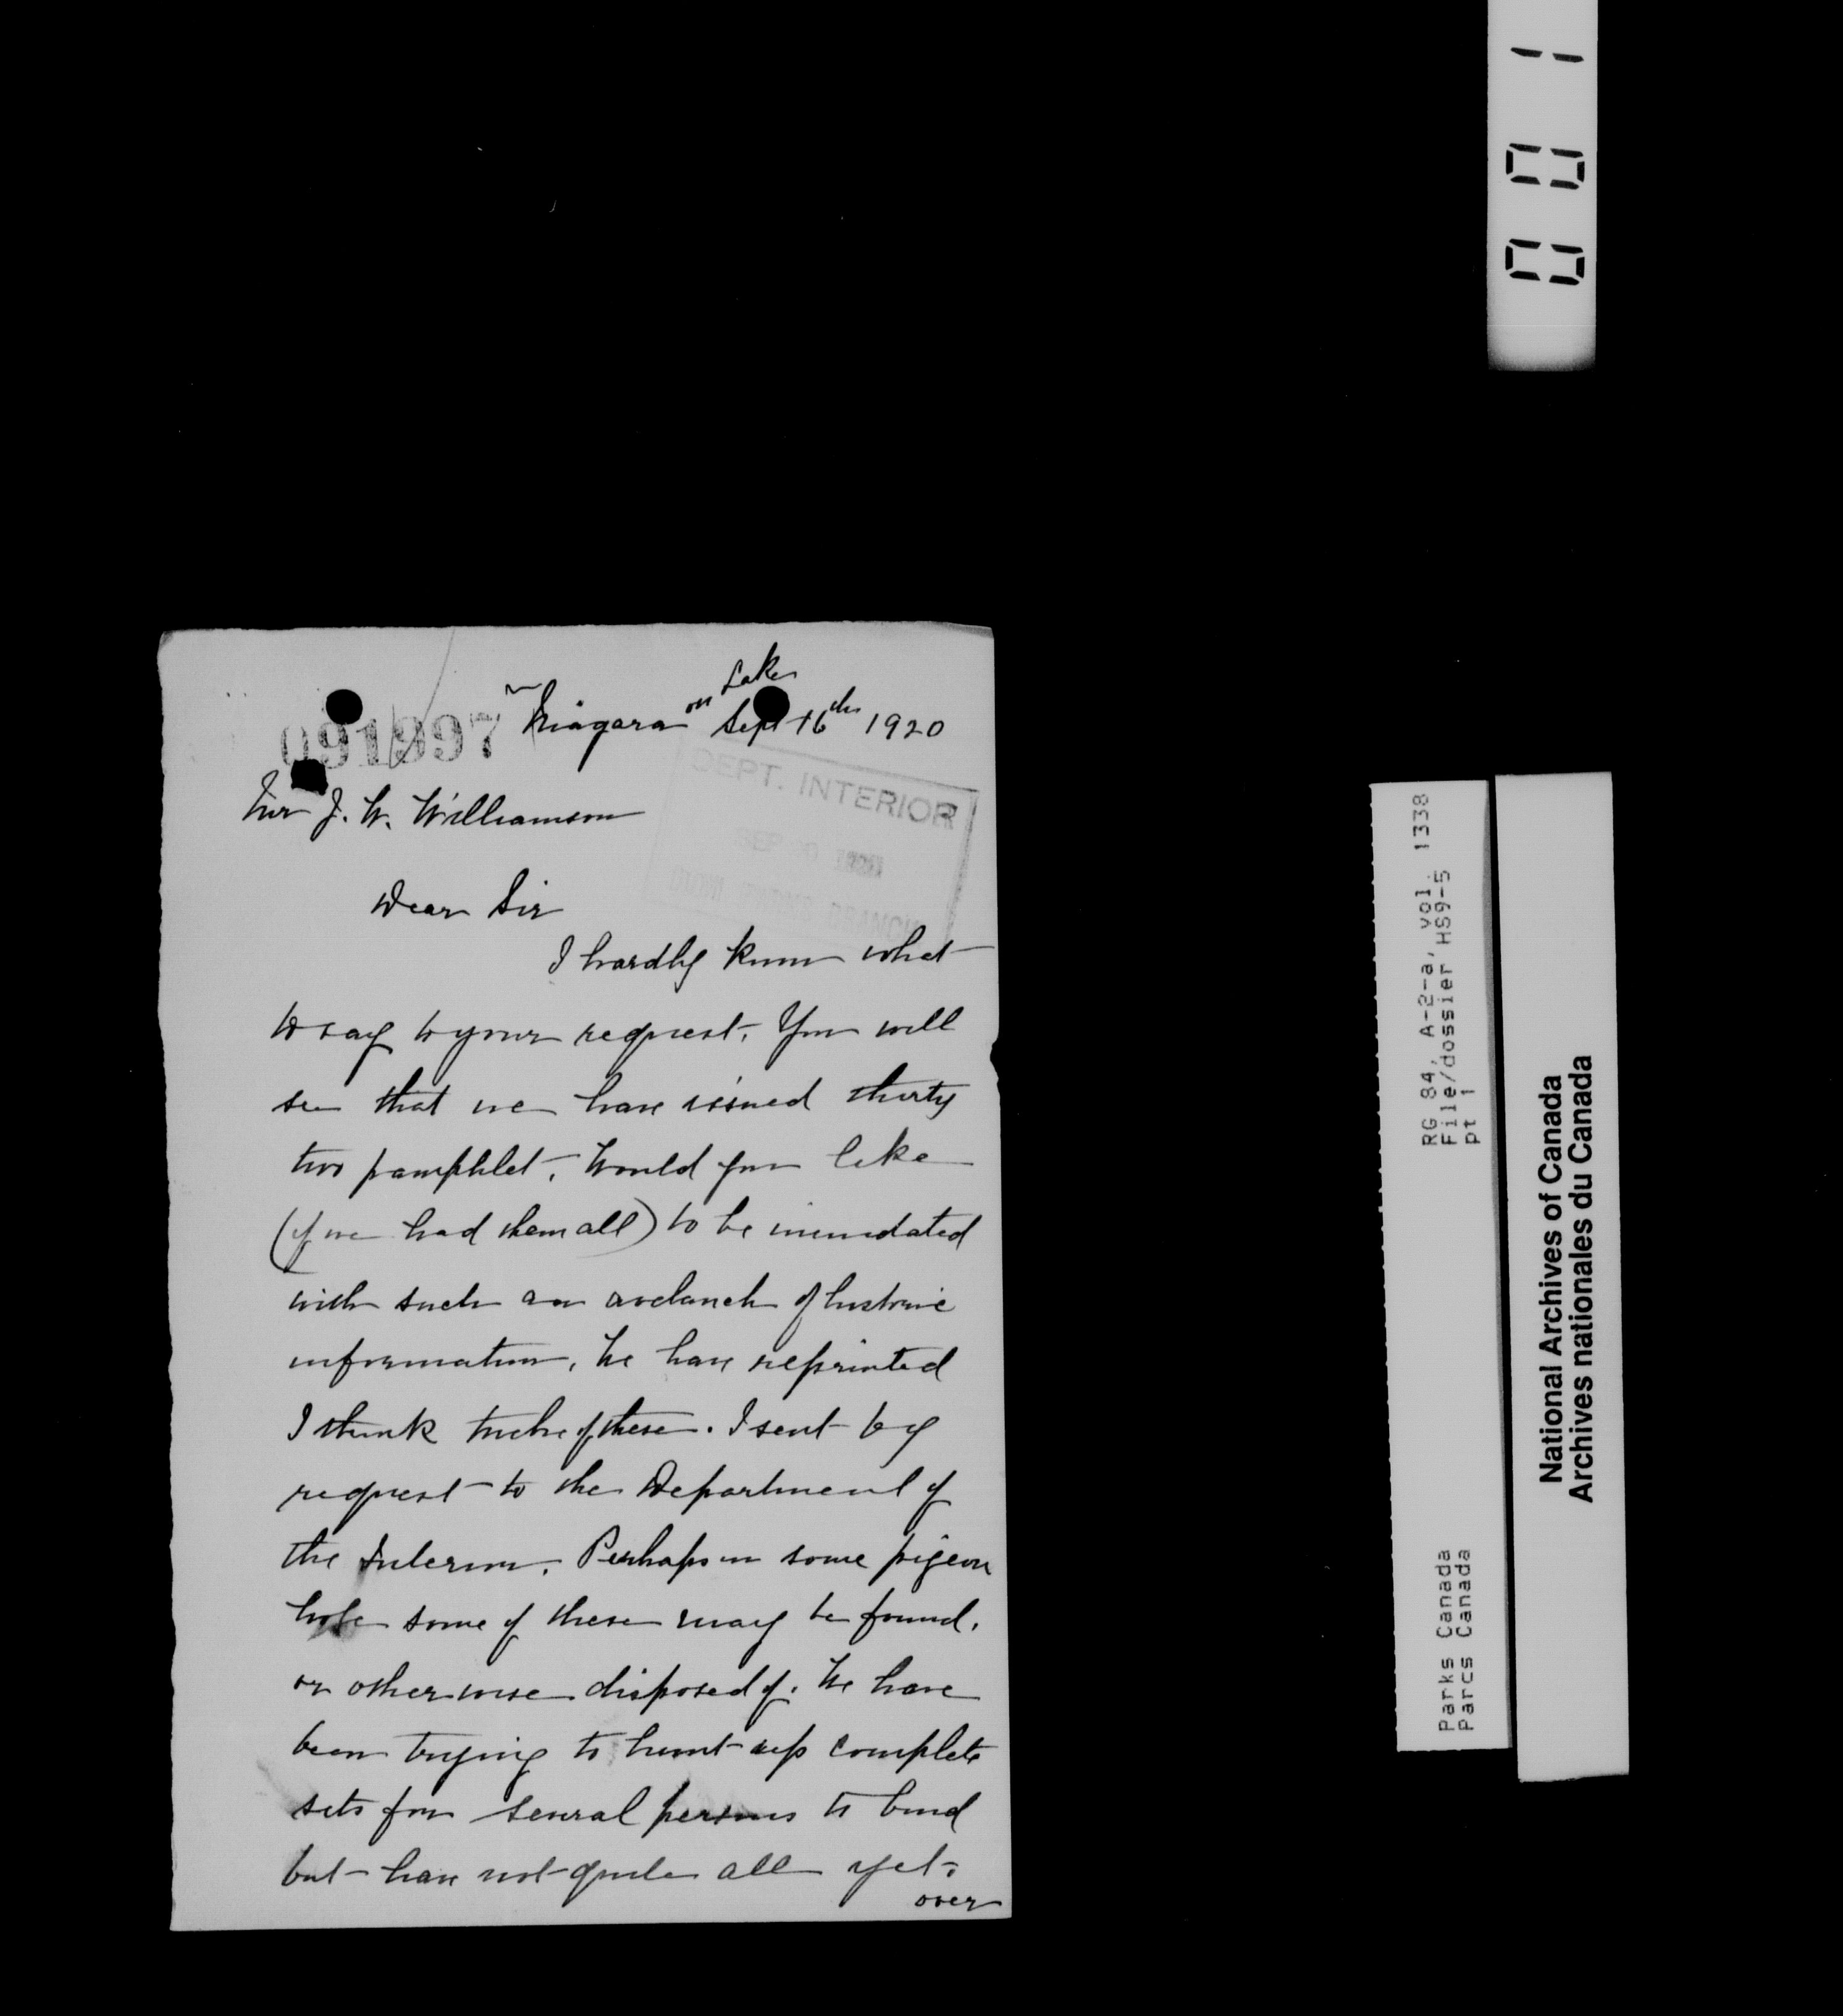 Niagara on Lake Sept 16th 1920
091997
Mr J. W. Williamson
DEPT. INTERIOR
SEP 20 1920
PARKS BRANCH
Dear Sir
I hardly know what
to say to your request. You will
see that we have issued thirty
two pamphlet. Would you like
(if we had them all) to be inundated
with such an avelanch of historic
information. We have reprinted
I think twelve of these. I sent by
request to the Department of
the Interior. Perhaps in some pigeon
hole some of these may be found.
or otherwise disposed of. We have
been trying to hunt up complete
sets for several persons to bind
but have not quite all yet.
over
001
RG 84, A-2-a, vol. 1338
File/dossier HS9-5
pt 1
Parks Canada
Parcs Canada
National Archives of Canada
Archives nationales du Canada